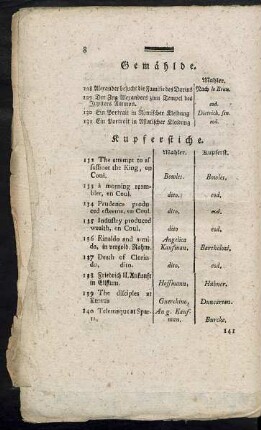 8
Gemählde.
Mahler.
128 Alexander besucht die Familie des Darius Nach le Brun.
129 Der Zug Alexanders zum Tempel des
Jupiters Ammon. eod.
130 Ein Portrait in Römischer Kleidung Dietrich. sen.
131 Ein Portrait in Asiatischer Kleidung eod.
Kupferstiche.
Mahler. Kupferst.
132 The attempt to as-
sassinate the King, en
Coul. Bowles. Bowles.
133 à morning ramb-
bler, en Coul. dito: eod.
134 Prudence produ-
ced esteeme, en Coul. dito. eod.
135 Industry produced
wealth, en Coul. dito eod.
136 Rinaldo and armi- Angelica
do, in vergold. Rahm. Kaufman. Bartholozi.
137 Death of Clorin-
do, dito. dito. eod.
138 Friedrich II. Ankunft
in Elisium. Hoffmann. Hübner.
139 The disciples at
Emaus Guerchena.
140 Telemaque at Spar- Ang. Kauf-
ta, man. Burcke.
141